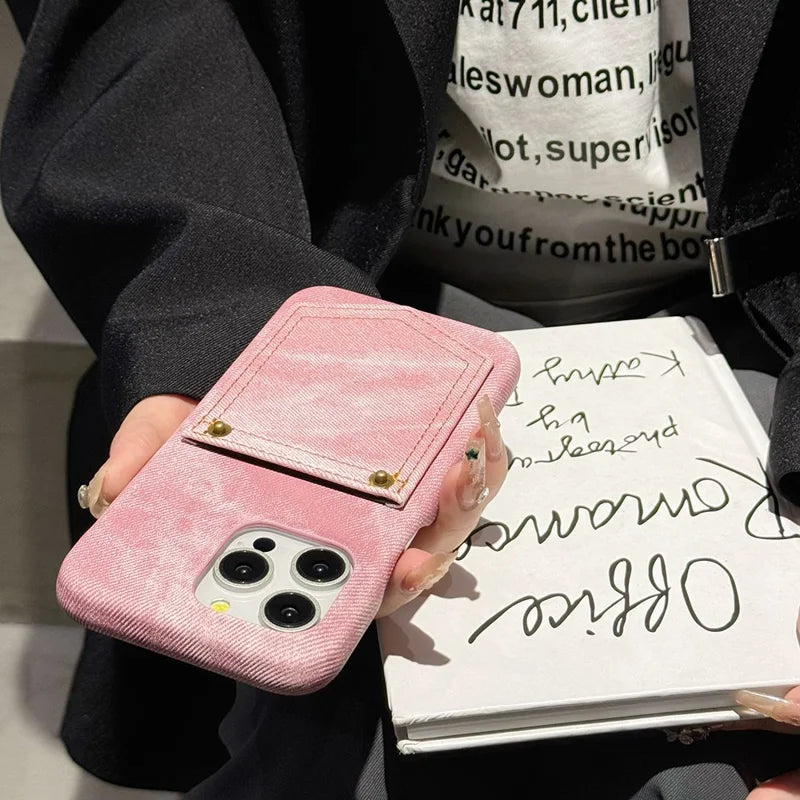 k at 7 11, clien
aleswoman, li
ilot, superv isor
, gar
nkyoufromthebo
Office
Romance
photogra
by
Kathy